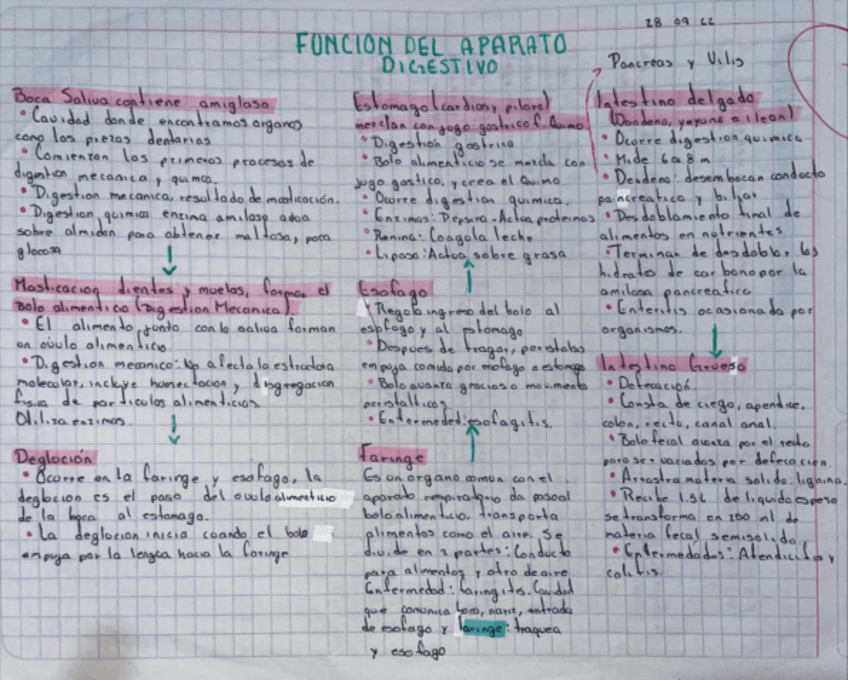 28 09 22
FUNCION DEL APARATO
DIGESTIVO
Boca Saliva contiene amiglasa
• Cavidad donde encontramos organos
como las piezas dentarias
• Comienzan los primeros procesos de
digestion mecanica y quimica.
• Digestion mecanica, resultado de masticación.
• Digestion quimica enzima amilasa actua
sobre almidon para obtener maltosa, poca
glocosa
Masticacion dientes y muelas, forman el
Bolo alimenticio (Digestion Mecanica)
• El alimento junto con la saliva forman
un ovulo alimenticio
• Digestion mecanico: No afecta la estructura
molecular, incluye humectacion y disgregacion
fisica de particulas alimenticias.
Utiliza enzimas.
Deglución
• Ocorre en la faringe y esofago, la
deglucion es el paso del ovulo alimenticio
de la boca al estomago.
• La deglucion inicia cuando el bolo
empuja por la lengua hacia la faringe
Estomago (cardias y piloro)
mezclan con jugo gastrico f. Quimo
• Digestión gastrica
• Bolo alimenticio se mezcla con
jugo gastico, y crea el Quimo.
• Ocurre digestion quimica.
• Enzimas: Depsina-Actua proteinas
• Renina: Coagula leche
• Lipasa: Actua sobre grasa
Esofago
• Regola ingreso del bolo al
esofago y al estomago
• Despues de tragar, peristalsis
empuja comida por esofago a estomago
• Bolo avanza gracias a movimiento
peristalticos
• Enfermeded: esofagitis.
Faringe
Es un organo comun con el
aparato respiratorio da pasoal
bolo alimenticio, transporta
alimentos como el aire. Se
divide en 2 partes: Conducto
para alimentos y otro de aire
Enfermedad: faringites. Cavidad
que comunica boca, nariz, entrada
de esofago y laringe: traquea
y esofago
Pancreas y Vilis
Intestino delgado
(Duodeno, yeyuno e ilean)
• Ocorre digestion quimica
• Mide 6 a 8 m
• Deudeno: desembocan conducto
pancreatico y biliar
• Desdoblamiento final de
alimentos en nutrientes
• Terminan de desdoblar los
hidratos de carbono por la
amilasa pancreatica
• Enteritis ocasionada por
organismos.
Intestino Grueso
• Defecación
• Consta de ciego, apendice,
colon, recto, canal anal.
• Bolo fecal avanza por el recto
para ser vaciados por defecacion.
• Arrastra materia solida: lignina.
• Recibe 1.5L de liquido espeso
se transforma en 200 ml de
materia fecal semisolida.
• Enfermedades: Apendicitis y
colitis.